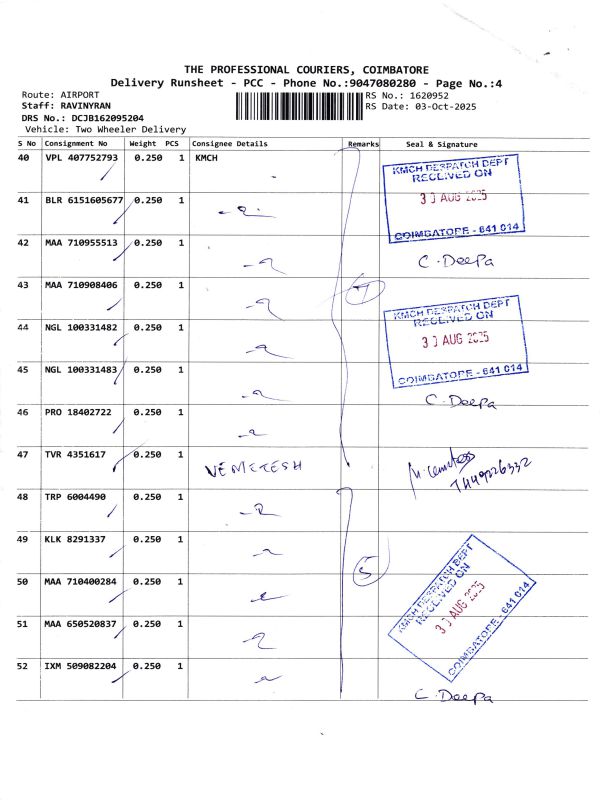 THE PROFESSIONAL COURIERS, COIMBATORE
Delivery Runsheet - PCC - Phone No.:9047080280 - Page No.:4
Route: AIRPORT RS No.: 1620952
Staff: RAVINYRAN RS Date: 03-Oct-2025
DRS No.: DCJB162095204
Vehicle: Two Wheeler Delivery
S No Consignment No Weight PCS Consignee Details Remarks Seal & Signature
40 VPL 407752793 0.250 1 KMCH
KMCH DESPATCH DEPT
RECEIVED ON
30 AUG 2025
COIMBATORE - 641 014
41 BLR 6151605677 0.250 1
42 MAA 710955513 0.250 1
C. Deepa
43 MAA 710908406 0.250 1
7
KMCH DESPATCH DEPT
RECEIVED ON
30 AUG 2025
COIMBATORE - 641 014
44 NGL 100331482 0.250 1
45 NGL 100331483 0.250 1
C. Deepa
46 PRO 18402722 0.250 1
47 TVR 4351617 0.250 1
48 TRP 6004490 0.250 1
49 KLK 8291337 0.250 1
5
KMCH DESPATCH DEPT
RECEIVED ON
30 AUG 2025
COIMBATORE - 641 014
50 MAA 710400284 0.250 1
51 MAA 650520837 0.250 1
52 IXM 509082204 0.250 1
C. Deepa